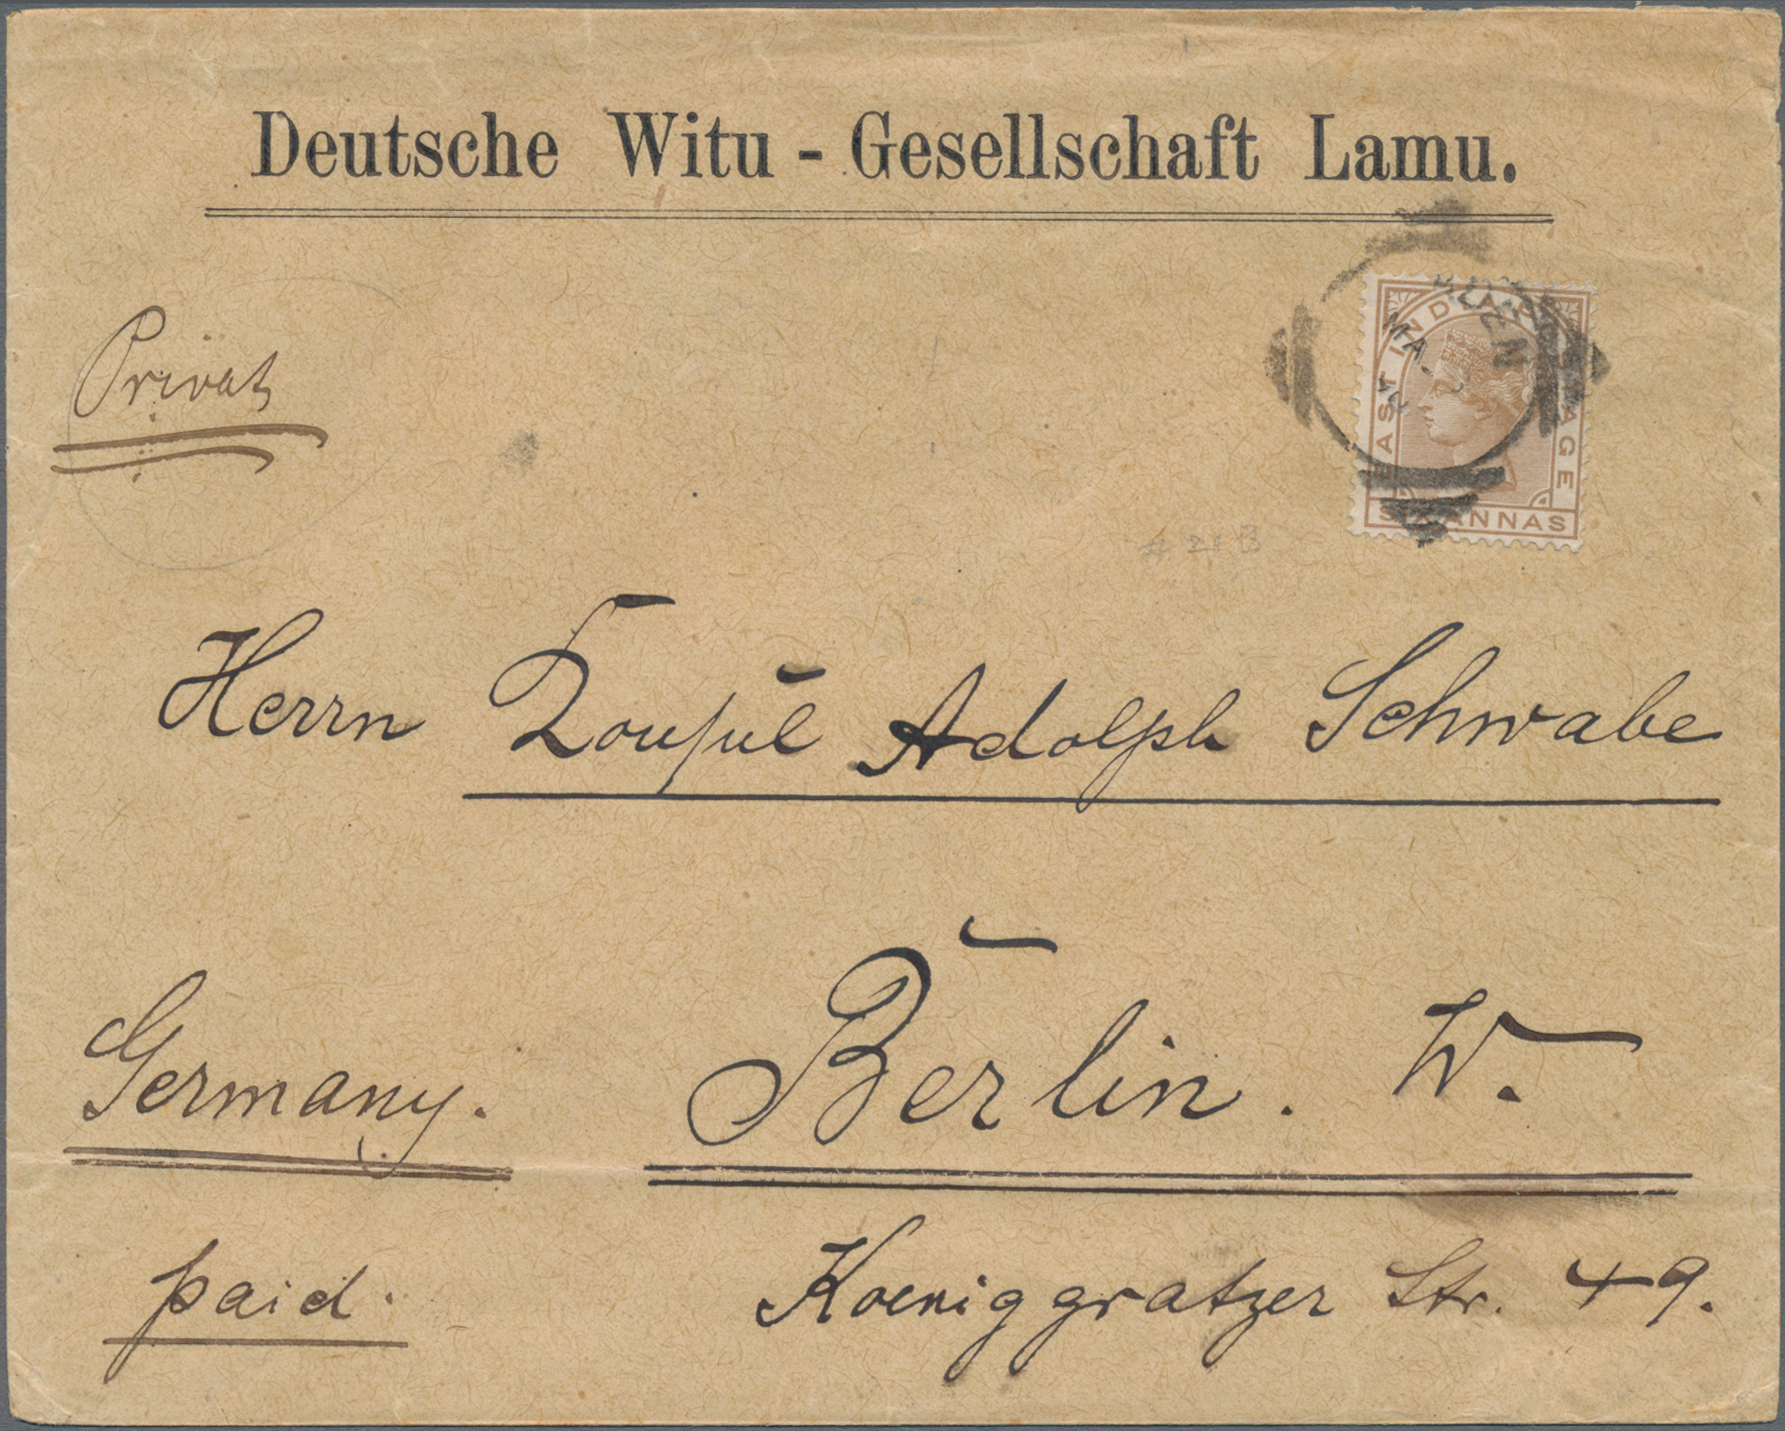 Deutsche Witu - Gesellschaft Lamu.
Privat
EAST INDIA POSTAGE
SIX ANNAS
Herrn Konsul Adolph Schwabe
Germany. Berlin. W.
paid. Koeniggratzer Str. 49.